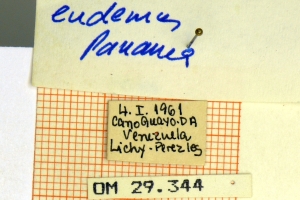 eudemus
Panama
4. I. 1961
Caño Guayo. D A
Venezuela
Lichy - Perez leg
OM 29.344